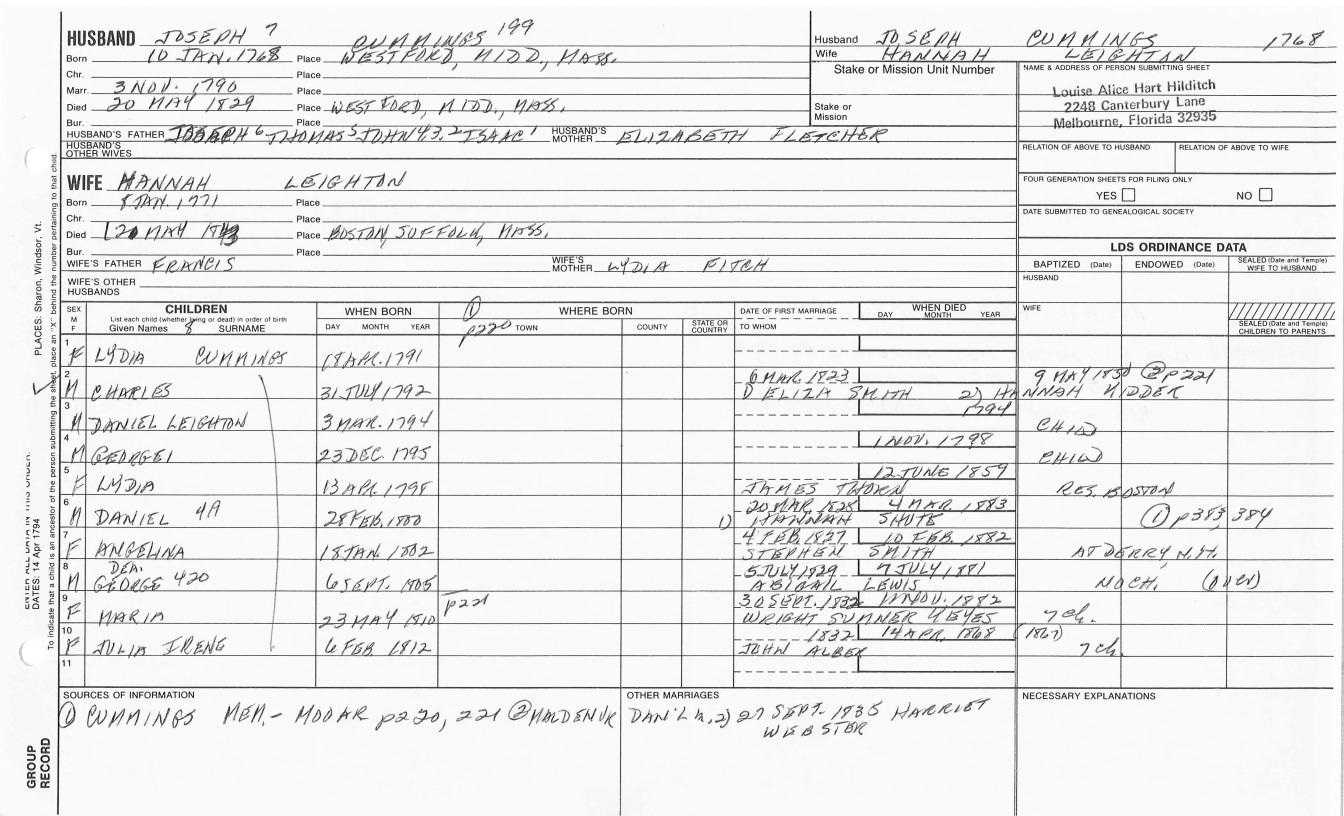 HUSBAND JOSEPH 7 CUMMINGS 199
Born 10 JAN. 1768 Place WESTFORD, MIDD., MASS.
Chr. Place
Marr. 3 NOV. 1790 Place
Died 20 MAY 1829 Place WESTFORD, MIDD, MASS,
Bur. Place
HUSBAND'S FATHER JOSEPH 6 THOMAS 5 JOHN 4 3. 2 ISAAC 1 HUSBAND'S MOTHER ELIZABETH FLETCHER
HUSBAND'S OTHER WIVES
WIFE HANNAH LEIGHTON
Born 8 JAN. 1771 Place
Chr. Place
Died MAY Place BOSTON, SUFFOLK, MASS,
Bur. Place
WIFE'S FATHER FRANCIS WIFE'S MOTHER LYDIA FITCH
WIFE'S OTHER HUSBANDS
Husband JOSEPH CUMMINGS 1768
Wife HANNAH LEIGHTON
Stake or Mission Unit Number
Stake or Mission
NAME & ADDRESS OF PERSON SUBMITTING SHEET
Louise Alice Hart Hilditch
2248 Canterbury Lane
Melbourne, Florida 32935
RELATION OF ABOVE TO HUSBAND RELATION OF ABOVE TO WIFE
FOUR GENERATION SHEETS FOR FILING ONLY
YES NO
DATE SUBMITTED TO GENEALOGICAL SOCIETY
LDS ORDINANCE DATA
BAPTIZED (Date) ENDOWED (Date) SEALED (Date and Temple) WIFE TO HUSBAND
HUSBAND
WIFE
SEALED (Date and Temple) CHILDREN TO PARENTS
SEX M F
CHILDREN
List each child (whether living or dead) in order of birth
Given Names 8 SURNAME
WHEN BORN
DAY MONTH YEAR
① p220
WHERE BORN
TOWN COUNTY STATE OR COUNTRY
DATE OF FIRST MARRIAGE
TO WHOM
WHEN DIED
DAY MONTH YEAR
1 F LYDIA CUMMINGS 18 APR. 1791
2 M CHARLES 31 JULY 1792 6 MAR 1823 9 MAY 1850 ② p221
ELIZA SMITH 2) HANNAH KIDDER
3 M DANIEL LEIGHTON 3 MAR. 1794 1794 CHILD
4 M GEORGE 23 DEC. 1795 1 NOV. 1798 CHILD
5 F LYDIA 13 APR. 1798 12 JUNE 1859
JAMES THORN RES. BOSTON
6 M DANIEL 28 FEB. 1800 20 MAR. 1828 4 MAR. 1883
1) HANNAH SHUTE ① p383, 384
7 F ANGELINA 18 JAN. 1802 4 FEB. 1827 10 FEB. 1882
STEPHEN SMITH AT DERRY, N.H.
8 M DEA. GEORGE 420 6 SEPT. 1805 5 JULY 1829 7 JULY 1881
ABIGAIL LEWIS NO CH. (OVER)
9 F MARIA 23 MAY 1810 p221 30 SEPT. 1832 11 NOV. 1882
WRIGHT SUMNER KEYES 7 ch.
10 F JULIA IRENE 6 FEB. 1812 1832 14 APR. 1868 (1867)
JOHN ALBEE 7 ch.
11
SOURCES OF INFORMATION
① CUMMINGS MEM. - MOOAR p220, 221 ② MALDEN VR
OTHER MARRIAGES
DAN'L m, 2) 27 SEPT. 1835 HARRIET
WEBSTER
NECESSARY EXPLANATIONS
ENTER ALL DATA IN THIS ORDER:
DATES: 14 Apr 1794
PLACES: Sharon, Windsor, Vt.
To indicate that a child is an ancestor of the person submitting the sheet, place an "X" behind the number pertaining to that child.
GROUP RECORD